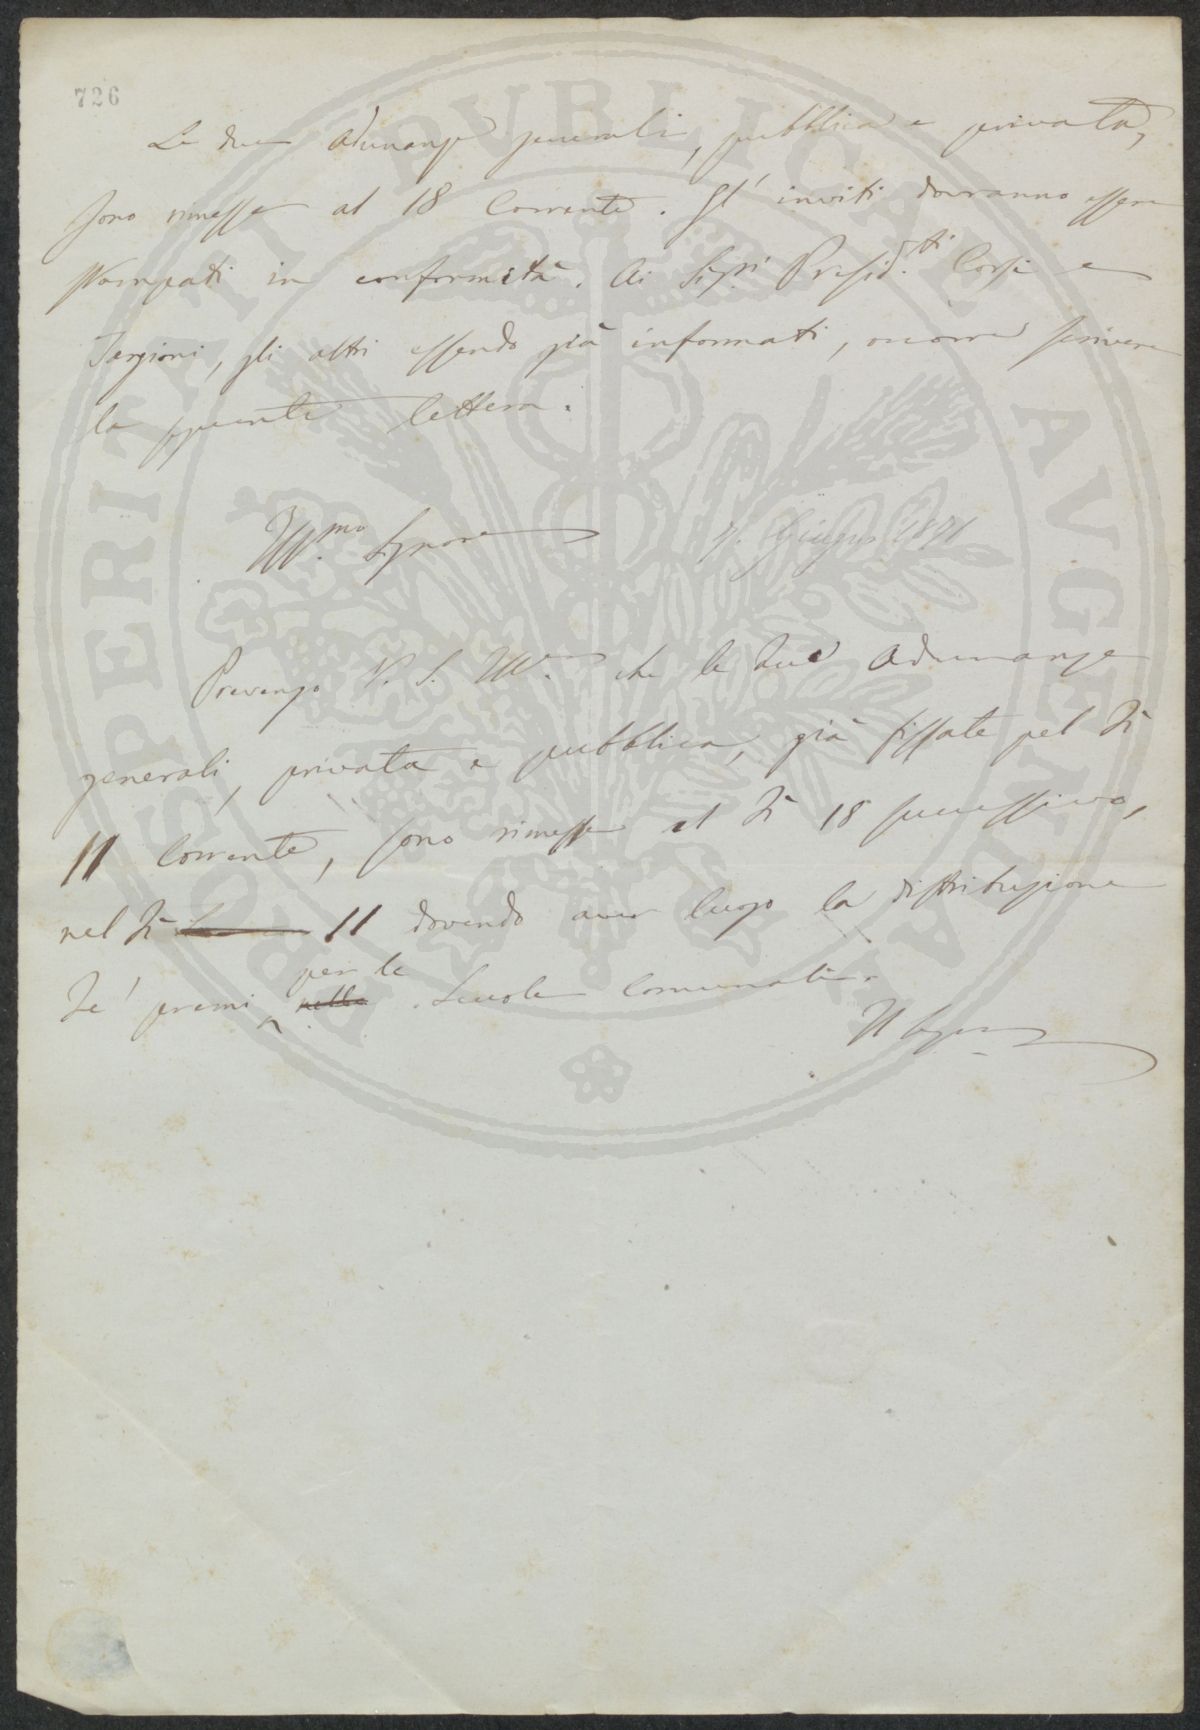 726
Le due Adunanze generali, pubblica e privata,
sono rimesse al 18 Corrente. Gl' inviti dovranno essere
stampati in conformità. Ai Sigg.ri Presid.ti Corsi e
Targioni, gli altri essendo già informati, occorre scrivere
la seguente lettera.
Ill.mo Signore
7. Giugno 1871
Prevengo V. S. Ill.a che le due Adunanze
generali, privata e pubblica, già fissate pel dì
11 Corrente, sono rimesse al dì 18 successivo,
nel dì 11 dovendo aver luogo la distribuzione
de' premi per le nelle Scuole Comunali.
PROSPERITATI PVBLICAE AVGENDAE